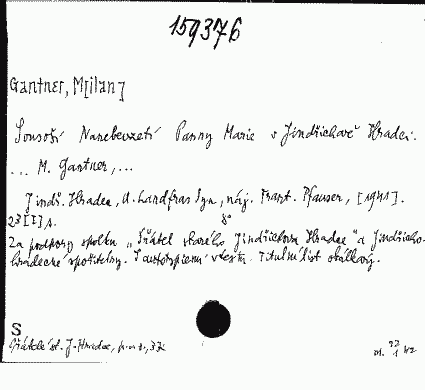 159376
Gantner, M[ilan]
Sousoší Nanebevzetí Panny Marie v Jindřichově Hradci.
... M. Gantner, ...
Jindř. Hradec, A. Landfras Syn, náj. Frant. Pfauser, [1941].
8°
Za podpory spolku „Přátel starého Jindřichova Hradce" a Jindřicho-
hradecké spořitelny. S autotypiemi v textu. Titulní list obálkový.
S
Přátelé st. J. Hradce,